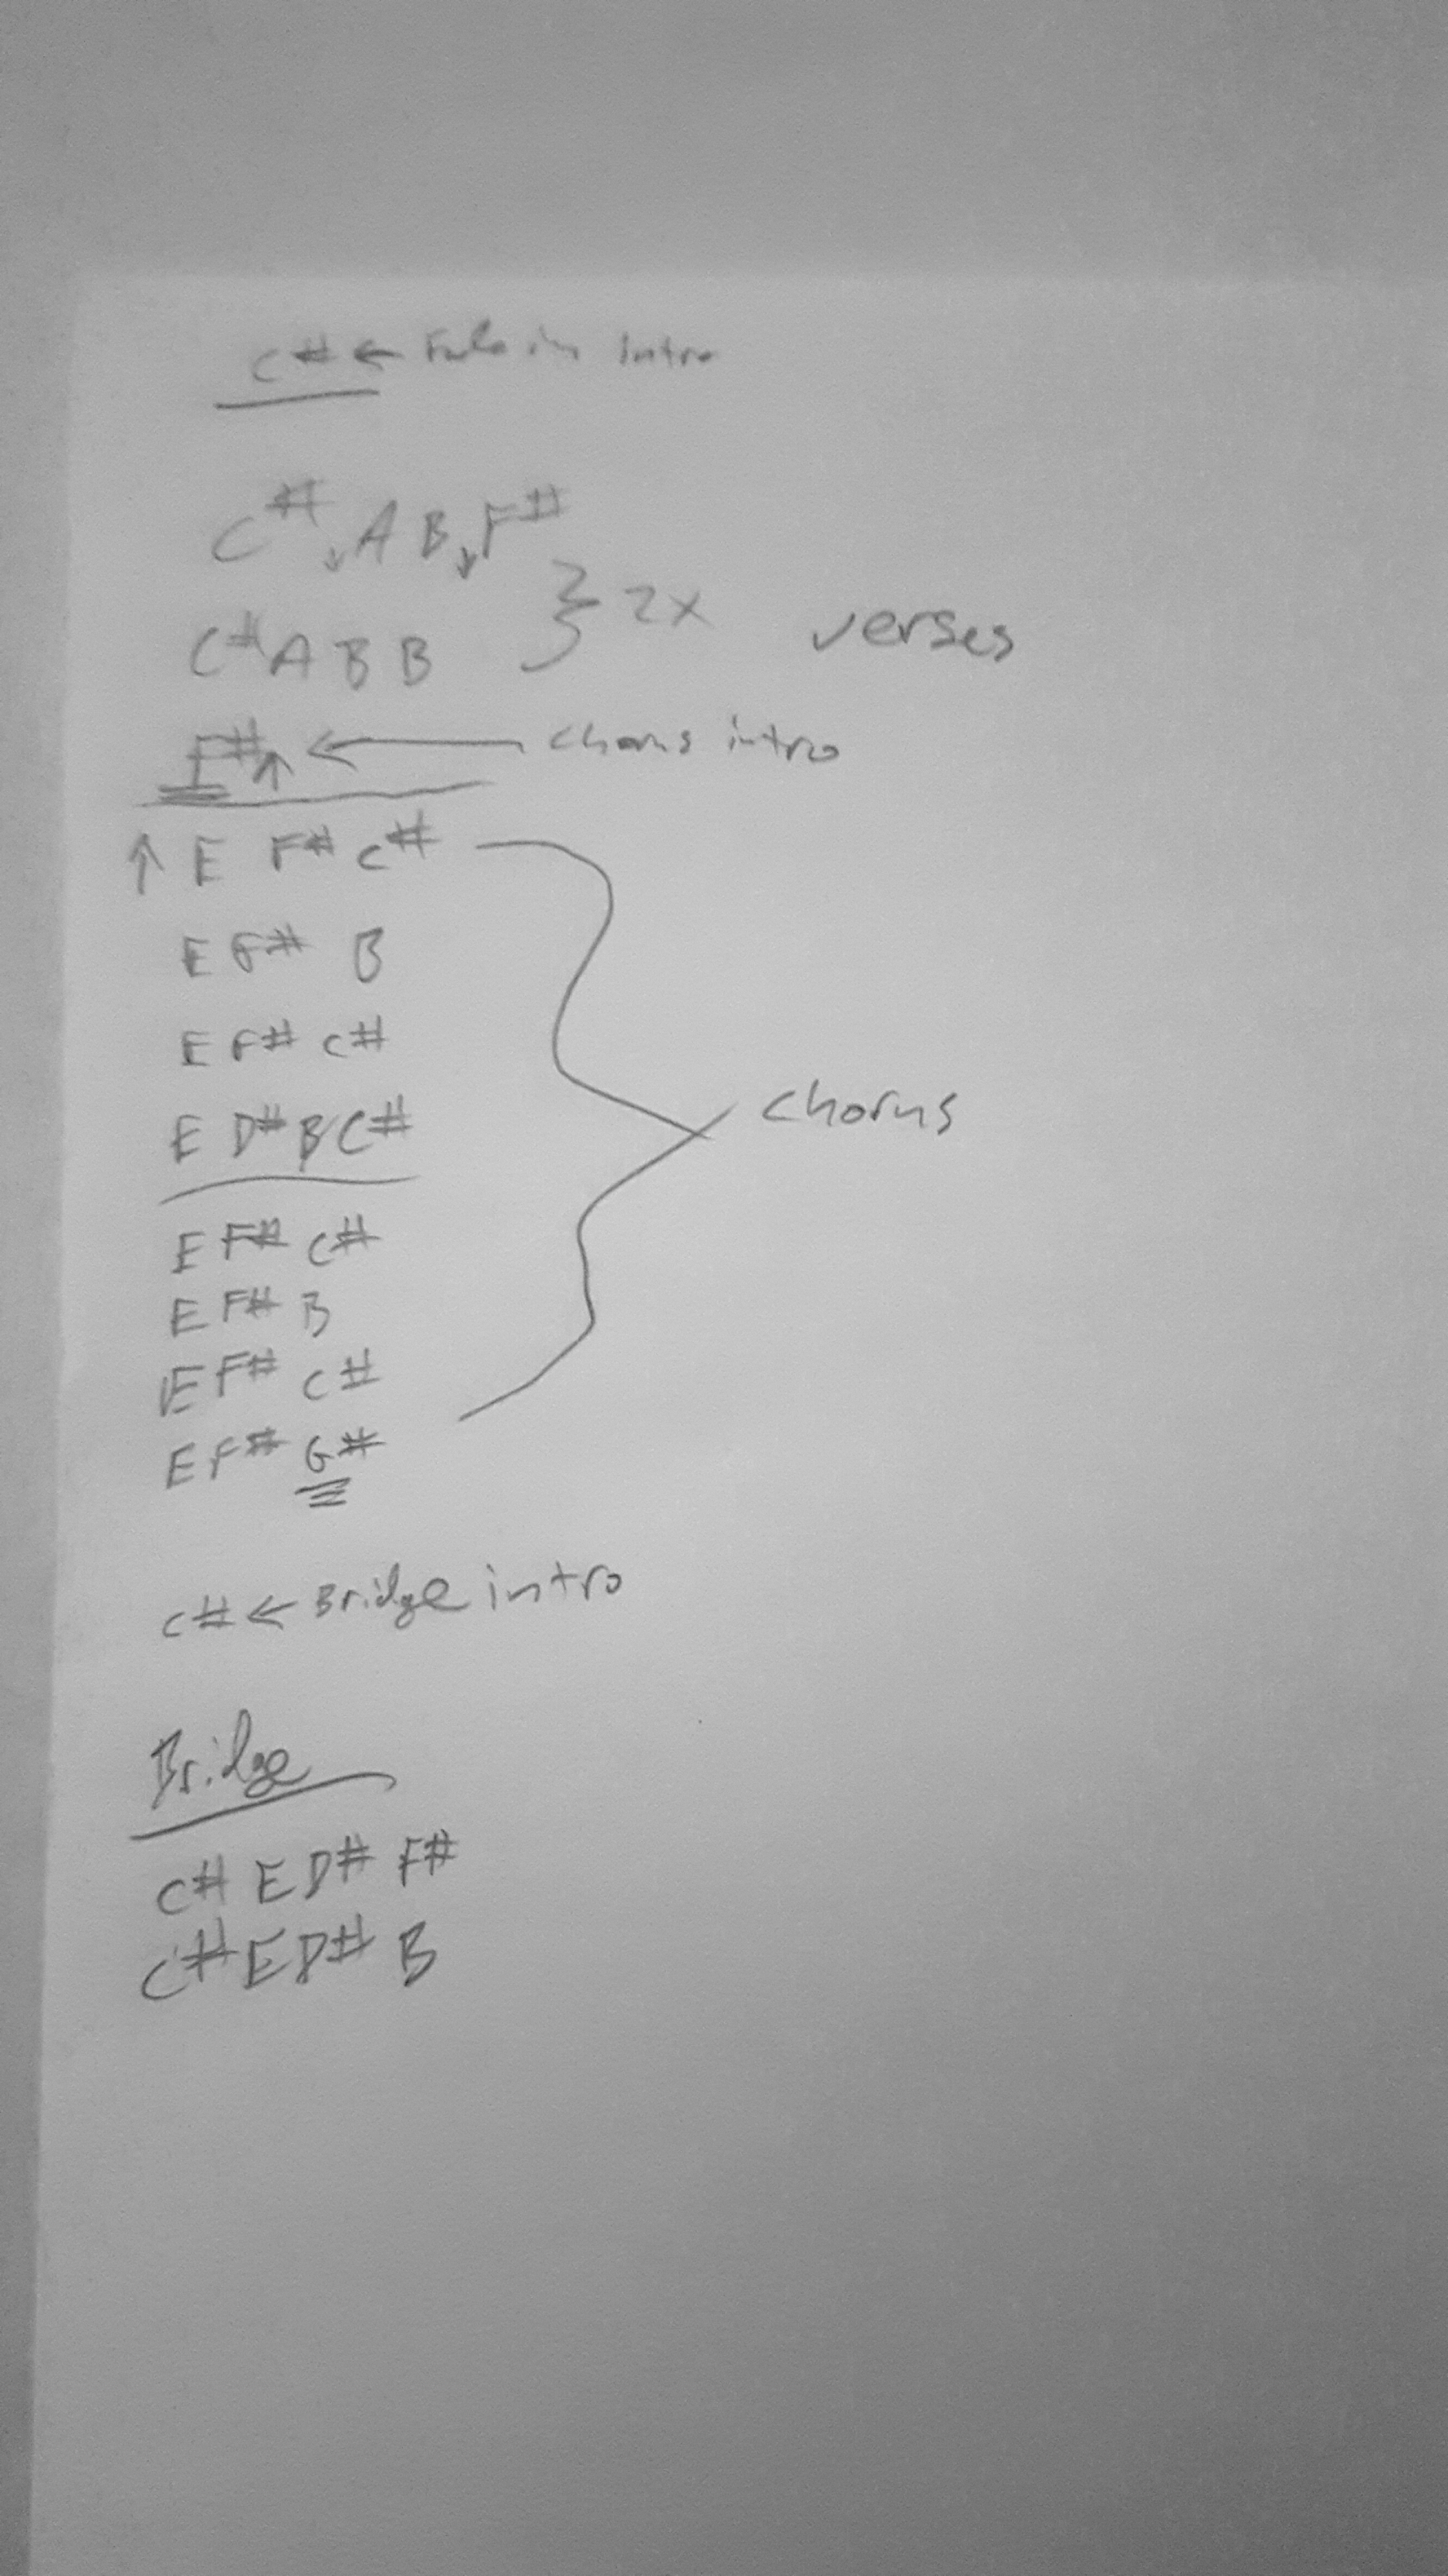 C# ← Fade in Intro
C# ↓ A B ↓ F#
C# A B B } 2x verses
F# ↑ ← chorus intro
↑ E F# C#
E F# B
E F# C#
E D# B C#
E F# C#
E F# B
E F# C#
E F# G#
chorus
C# ← Bridge intro
Bridge
C# E D# F#
C# E D# B